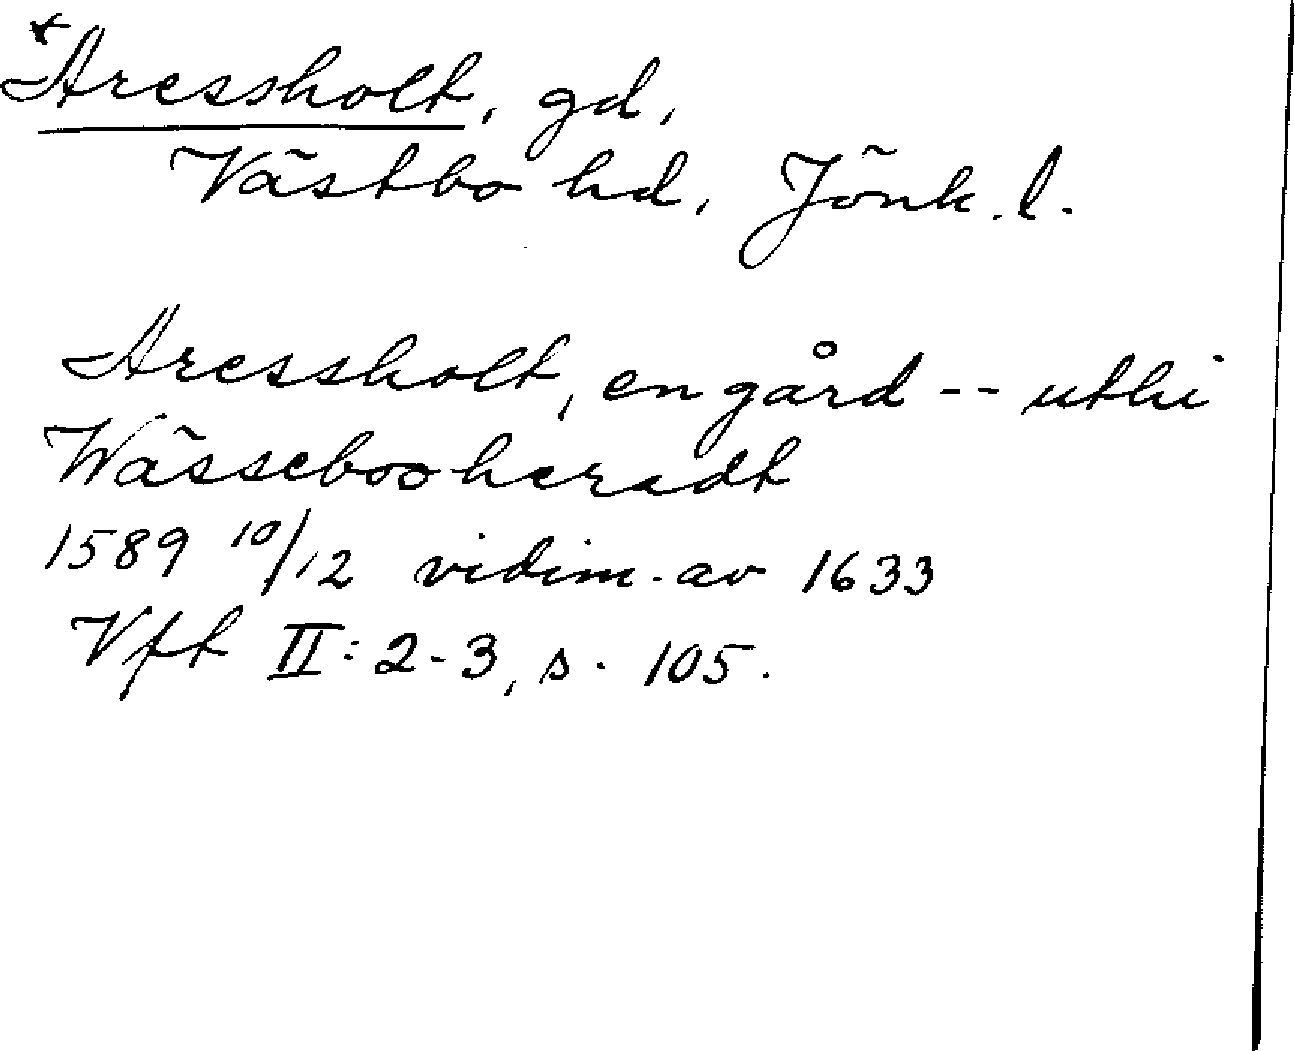 *Aressholt, gd,
Västbo hd, Jönk. l.
Aressholt, en gård -- uthi
Wässeboo heradt
1589 10/12 vidim. av 1633
Vft II: 2-3, s. 105.